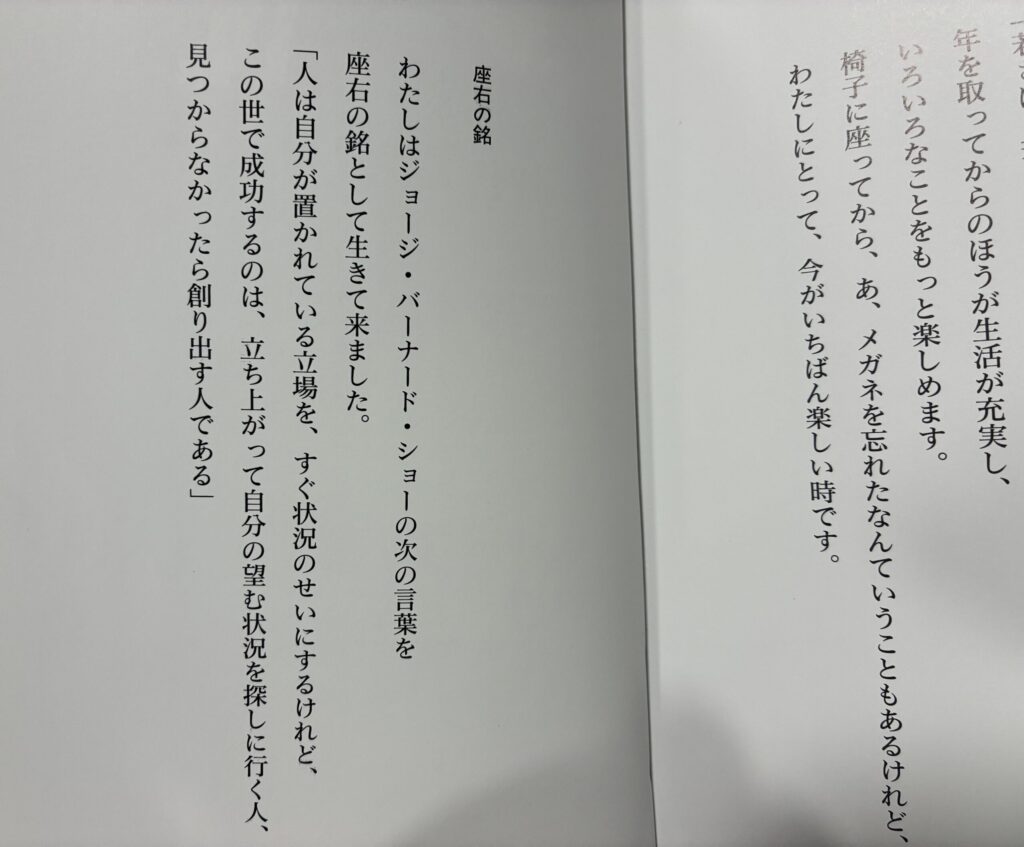 年を取ってからのほうが生活が充実し、
いろいろなことをもっと楽しめます。
椅子に座ってから、あ、メガネを忘れたなんていうこともあるけれど、
わたしにとって、今がいちばん楽しい時です。
座右の銘
わたしはジョージ・バーナード・ショーの次の言葉を
座右の銘として生きて来ました。
「人は自分が置かれている立場を、すぐ状況のせいにするけれど、
この世で成功するのは、立ち上がって自分の望む状況を探しに行く人、
見つからなかったら創り出す人である」